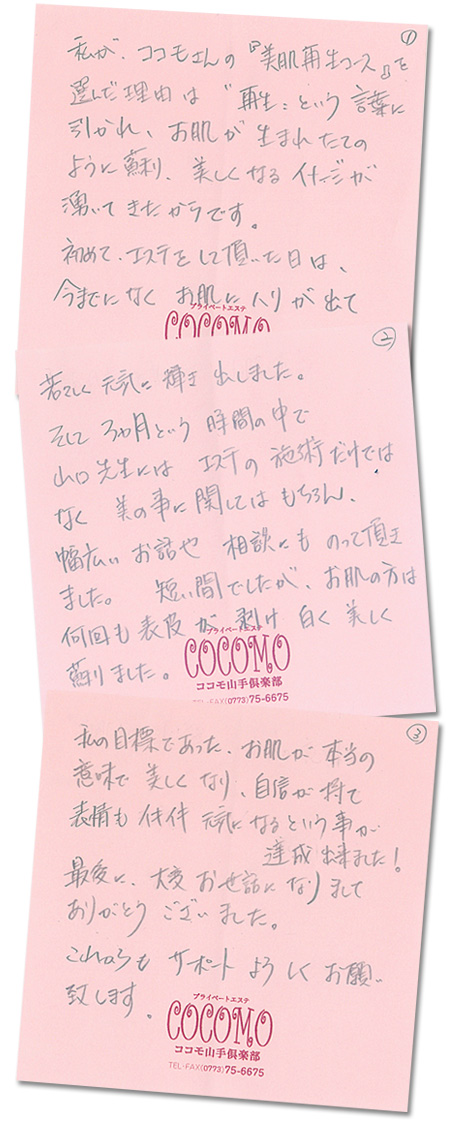 ①
私が、ココモさんの『美肌再生コース』を
選んだ理由は“再生”という言葉に
引かれ、お肌が生まれたての
ように蘇り、美しくなるイメージが
湧いてきたからです。
初めて、エステをして頂いた日は、
今までになくお肌にハリが出て
プライベートエステ
COCOMO
②
若々しく元気に輝き出しました。
そして3ヵ月という時間の中で
山口先生には エステの施術だけでは
なく 美の事に関してはもちろん、
幅広いお話や 相談にものって頂き
ました。 短い間でしたが、お肌の方は
何回も表皮が剥け白く美しく
蘇りました。
プライベートエステ
COCOMO
ココモ山手倶楽部
TEL・FAX(0773)75-6675
③
私の目標であった、お肌が本当の
意味で美しくなり、自信が持て
表情もイキイキ元気になるという事が
達成出来ました!
最後に、大変お世話になりまして
ありがとうございました。
これからもサポートよろしくお願い
致します。
プライベートエステ
COCOMO
ココモ山手倶楽部
TEL・FAX(0773)75-6675